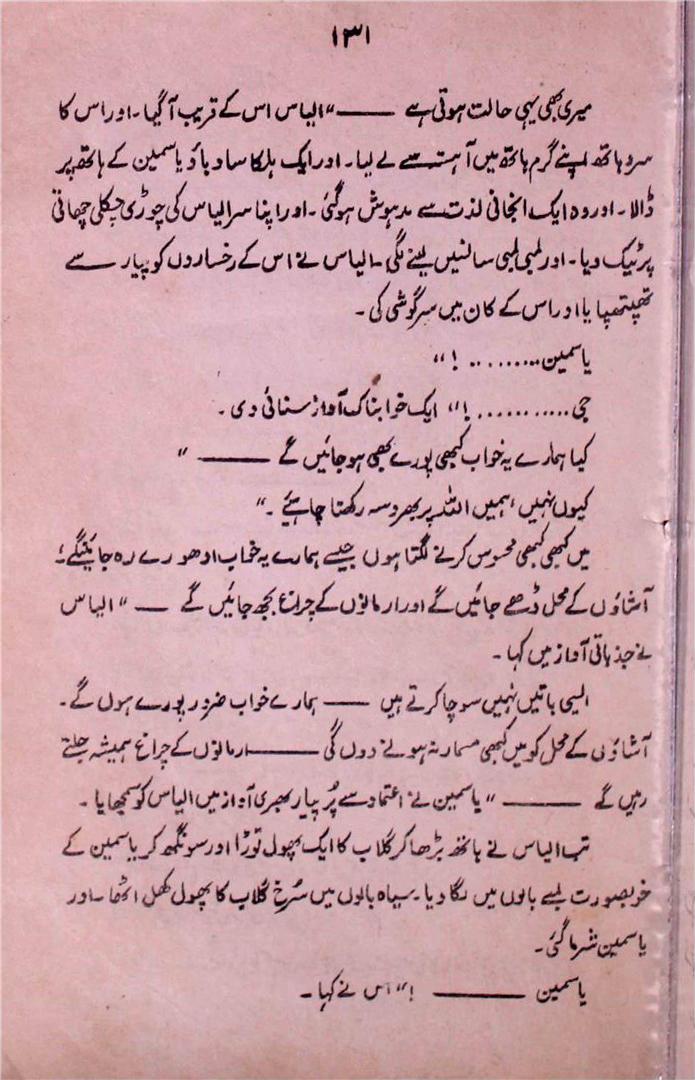 ۱۳۱
میری بھی یہی حالت ہوتی ہے ——— " الیاس اس کے قریب آگیا ۔ اور اس کا
سرد ہاتھ اپنے گرم ہاتھ میں آہستہ سے لے لیا ۔ اور ایک ہلکا سا دباؤ یاسمین کے ہاتھ پر
ڈالا ۔ اور وہ ایک انجانی لذت سے مدہوش ہوگئی ۔ اور اپنا سر الیاس کی چوڑی چکلی چھاتی
پر ٹیک دیا ۔ اور لمبی لمبی سانسیں لینے لگی ۔ الیاس نے اس کے رخساروں کو پیار سے
تھپتھپایا اور اس کے کان میں سرگوشی کی ۔
یاسمین .......... ! "
جی ........... ! " ایک خوابناک آواز سنائی دی ۔
کیا ہمارے یہ خواب کبھی پورے بھی ہو جائیں گے ——— "
کیوں نہیں ، ہمیں اللہ پر بھروسہ رکھنا چاہئے ۔ "
میں کبھی کبھی محسوس کرنے لگتا ہوں جیسے ہمارے یہ خواب ادھورے رہ جائینگے ؛
آشاؤں کے محل ڈھے جائیں گے اور ارمانوں کے چراغ بجھ جائیں گے — " الیاس
نے جذباتی آواز میں کہا ۔
ایسی باتیں نہیں سوچا کرتے ہیں —— ہمارے خواب ضرور پورے ہوں گے ۔
آشاؤں کے محل کو میں کبھی مسمار نہ ہونے دوں گی ——— ارمانوں کے چراغ ہمیشہ جلتے
رہیں گے ——— " یاسمین نے اعتماد سے پُر پیار بھری آواز میں الیاس کو سمجھایا ۔
تب الیاس نے ہاتھ بڑھا کر گلاب کا ایک پھول توڑا اور سونگھ کر یاسمین کے
خوبصورت لمبے بالوں میں لگا دیا ۔ سیاہ بالوں میں سُرخ گلاب کا پھول کھل اٹھا ۔ اور
یاسمین شرما گئی ۔
یاسمین ——— ! " اس نے کہا ۔